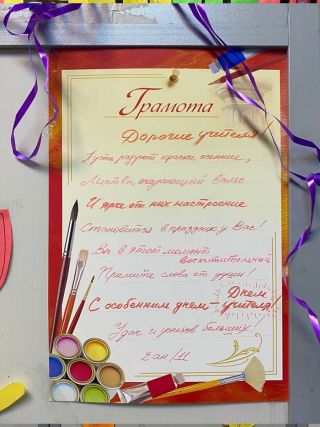 Грамота
Дорогие учителя!
Пусть радуют краски осенние,
Листвы очарующей вальс
И ярче от них настроение
Становится в праздник у Вас!
Вы в этот момент
восхитительный
Примите слова от души!
С особенным днем - Днем
учителя!
Удач и успехов больших!
2 ан/11